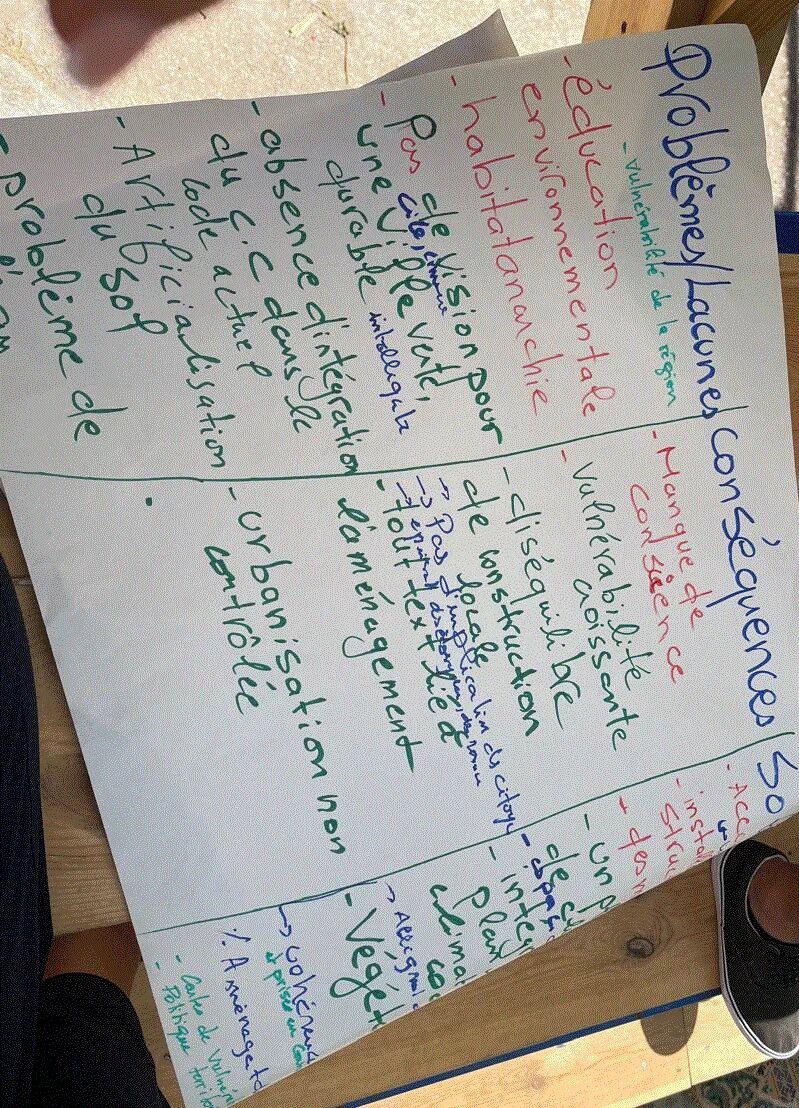 Problèmes/Lacunes
- Vulnérabilité de la région
- éducation
environnementale
- habitat anarchie
- Pas de vision pour
une ville verte,
durable intelligente
- absence d'intégration
du C.C dans le
code actuel
- Artificialisation
du sol
- problème de
conséquences
- Manque de
Consience
- Vulnérabilité
croissante
- diséquilibre
de construction
locale
→ Pas d'implication des citoye
- tout text lié à
l'aménagement
- urbanisation non
contrôlée
So
- Acc
- insta
struc
- un p
de cu
- espa
- integ
plan
climat
co
- Végét
→ cohéren
et prise en com
% Aménagete
- Cartes de Vulnéra
- Politique